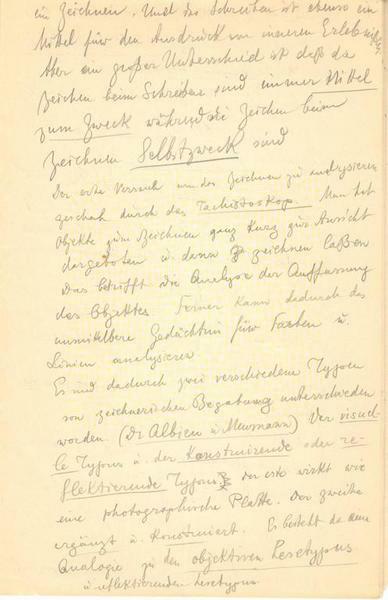 ein Zeichnen. Und das Schreiben ist ebenso ein
Mittel für den Ausdruck von inneren Erlebnissen
Aber ein großer Unterscheid ist daß da
Zeichen beim Schreiben sind immer Mittel
zum Zweck während die Zeichen beim
Zeichnen Selbstzweck sind
Der erste Versuch um das Zeichnen zu analysieren
geschah durch das Tachistoskop. Man hat
Objekte zum Zeichnen ganz kurz zur Ansicht
dargeboten u. dann zeichnen laßen
Das betrifft die Analyse der Auffassung
des Objektes. Ferner kann dadurch das
unmittelbare Gedächtnis für Farben u.
Linien analysieren
Es sind dadurch zwei verschiedene Typen
von zeichnerischen Begabung unterschieden
worden. (Dr Albien u Meumann) Der visuel-
le Typus u. der Konstruirende oder re-
flektierende Typus. der erste wirkt wie
eine photographische Platte. Der zweite
ergänzt u. konstruiert. Es besteht da eine
Analogie zu den objektiven Lesetypus
u reflektierenden Lesetypus.